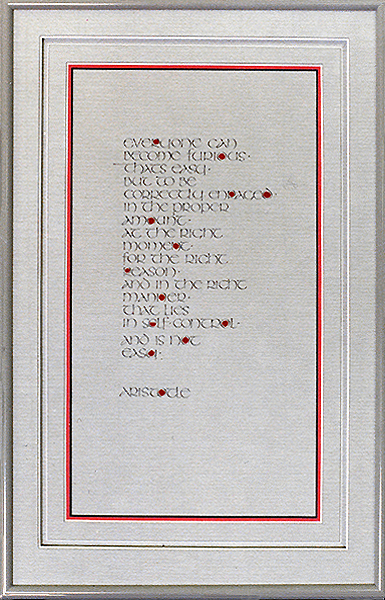 everyone can
become furious·
thats easy·
but to be
correctly enraged·
in the proper
amount·
at the right
moment·
for the right
reason·
and in the right
manner·
that lies
in self-control·
and is not
easy·
Aristotle